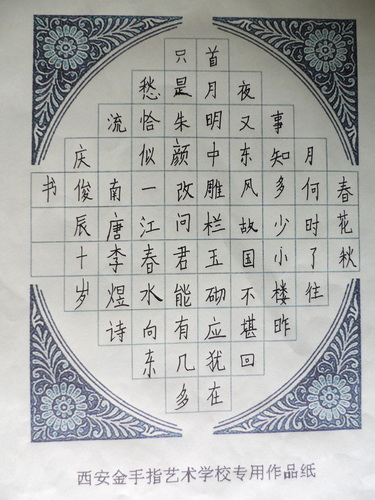 春花秋
月何时了往
事知多少小楼昨
夜又东风故国不堪回
首月明中雕栏玉砌应犹在
只是朱颜改问君能有几多
愁恰似一江春水向东
流南唐李煜诗
庆俊辰十岁
书
西安金手指艺术学校专用作品纸